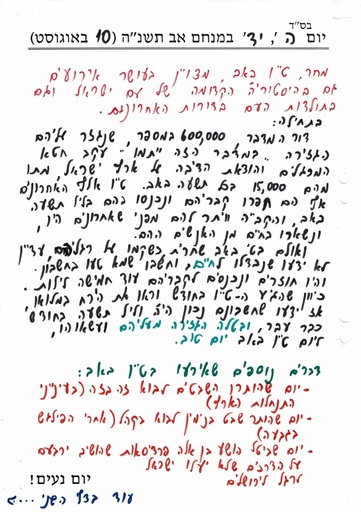 בס"ד
יום ה', יד' במנחם אב תשנ"ה (10 באוגוסט)
מחר, ט"ו באב, מצויין בעושר אירועים
גם בהיסטוריה הקדומה של עם ישראל וגם
בתולדות העם בדורות האחרונים.
בתחילה:
דור המדבר, 600,000 במספר, שנגזר עליהם
הגזירה "במדבר הזה יתמו" עקב חטא
המרגלים והוצאת הדיבה על ארץ ישראל, מתו
מהם 15,000 בכל תשעה באב. ט"ו אלף האחרונים
אף הם חפרו קבריהם ונכנסו בהם בליל תשעה
באב, והקב"ה ויתר להם מפני שאחרונים היו,
ונשארו בחיים מן האנשים ההם.
ואולם בט' באב שחרית כשקמו על רגליהם עדיין
לא ידעו שנבדלו לחיים, וחשבו שמא טעו בחשבון.
והיו חוזרים ונכנסים לקבריהם עוד חמישה לילות.
כיוון שהגיע ה-ט"ו בחודש וראו את הירח במלואו
אז ידעו שחשבונם נכון היה וליל תשעה בחודש
כבר עבר, ובטלה הגזירה מעליהם ועשאוהו,
ליום ט"ו באב יום טוב.
דברים נוספים שאירעו בט"ו באב:
- יום שהותרו השבטים לבוא זה בזה (בעינייני
התנחלות הארץ)
- יום שהותר שבט בנימין לבוא בקהל (אחרי הפילגש
בגבעה)
- יום שביטל הושע בן אלה פרדיסאות שהושיב ירבעם
על הדרכים שלא יעלו ישראל
לרגל לירושלים
יום נעים!
עוד בדף השני...